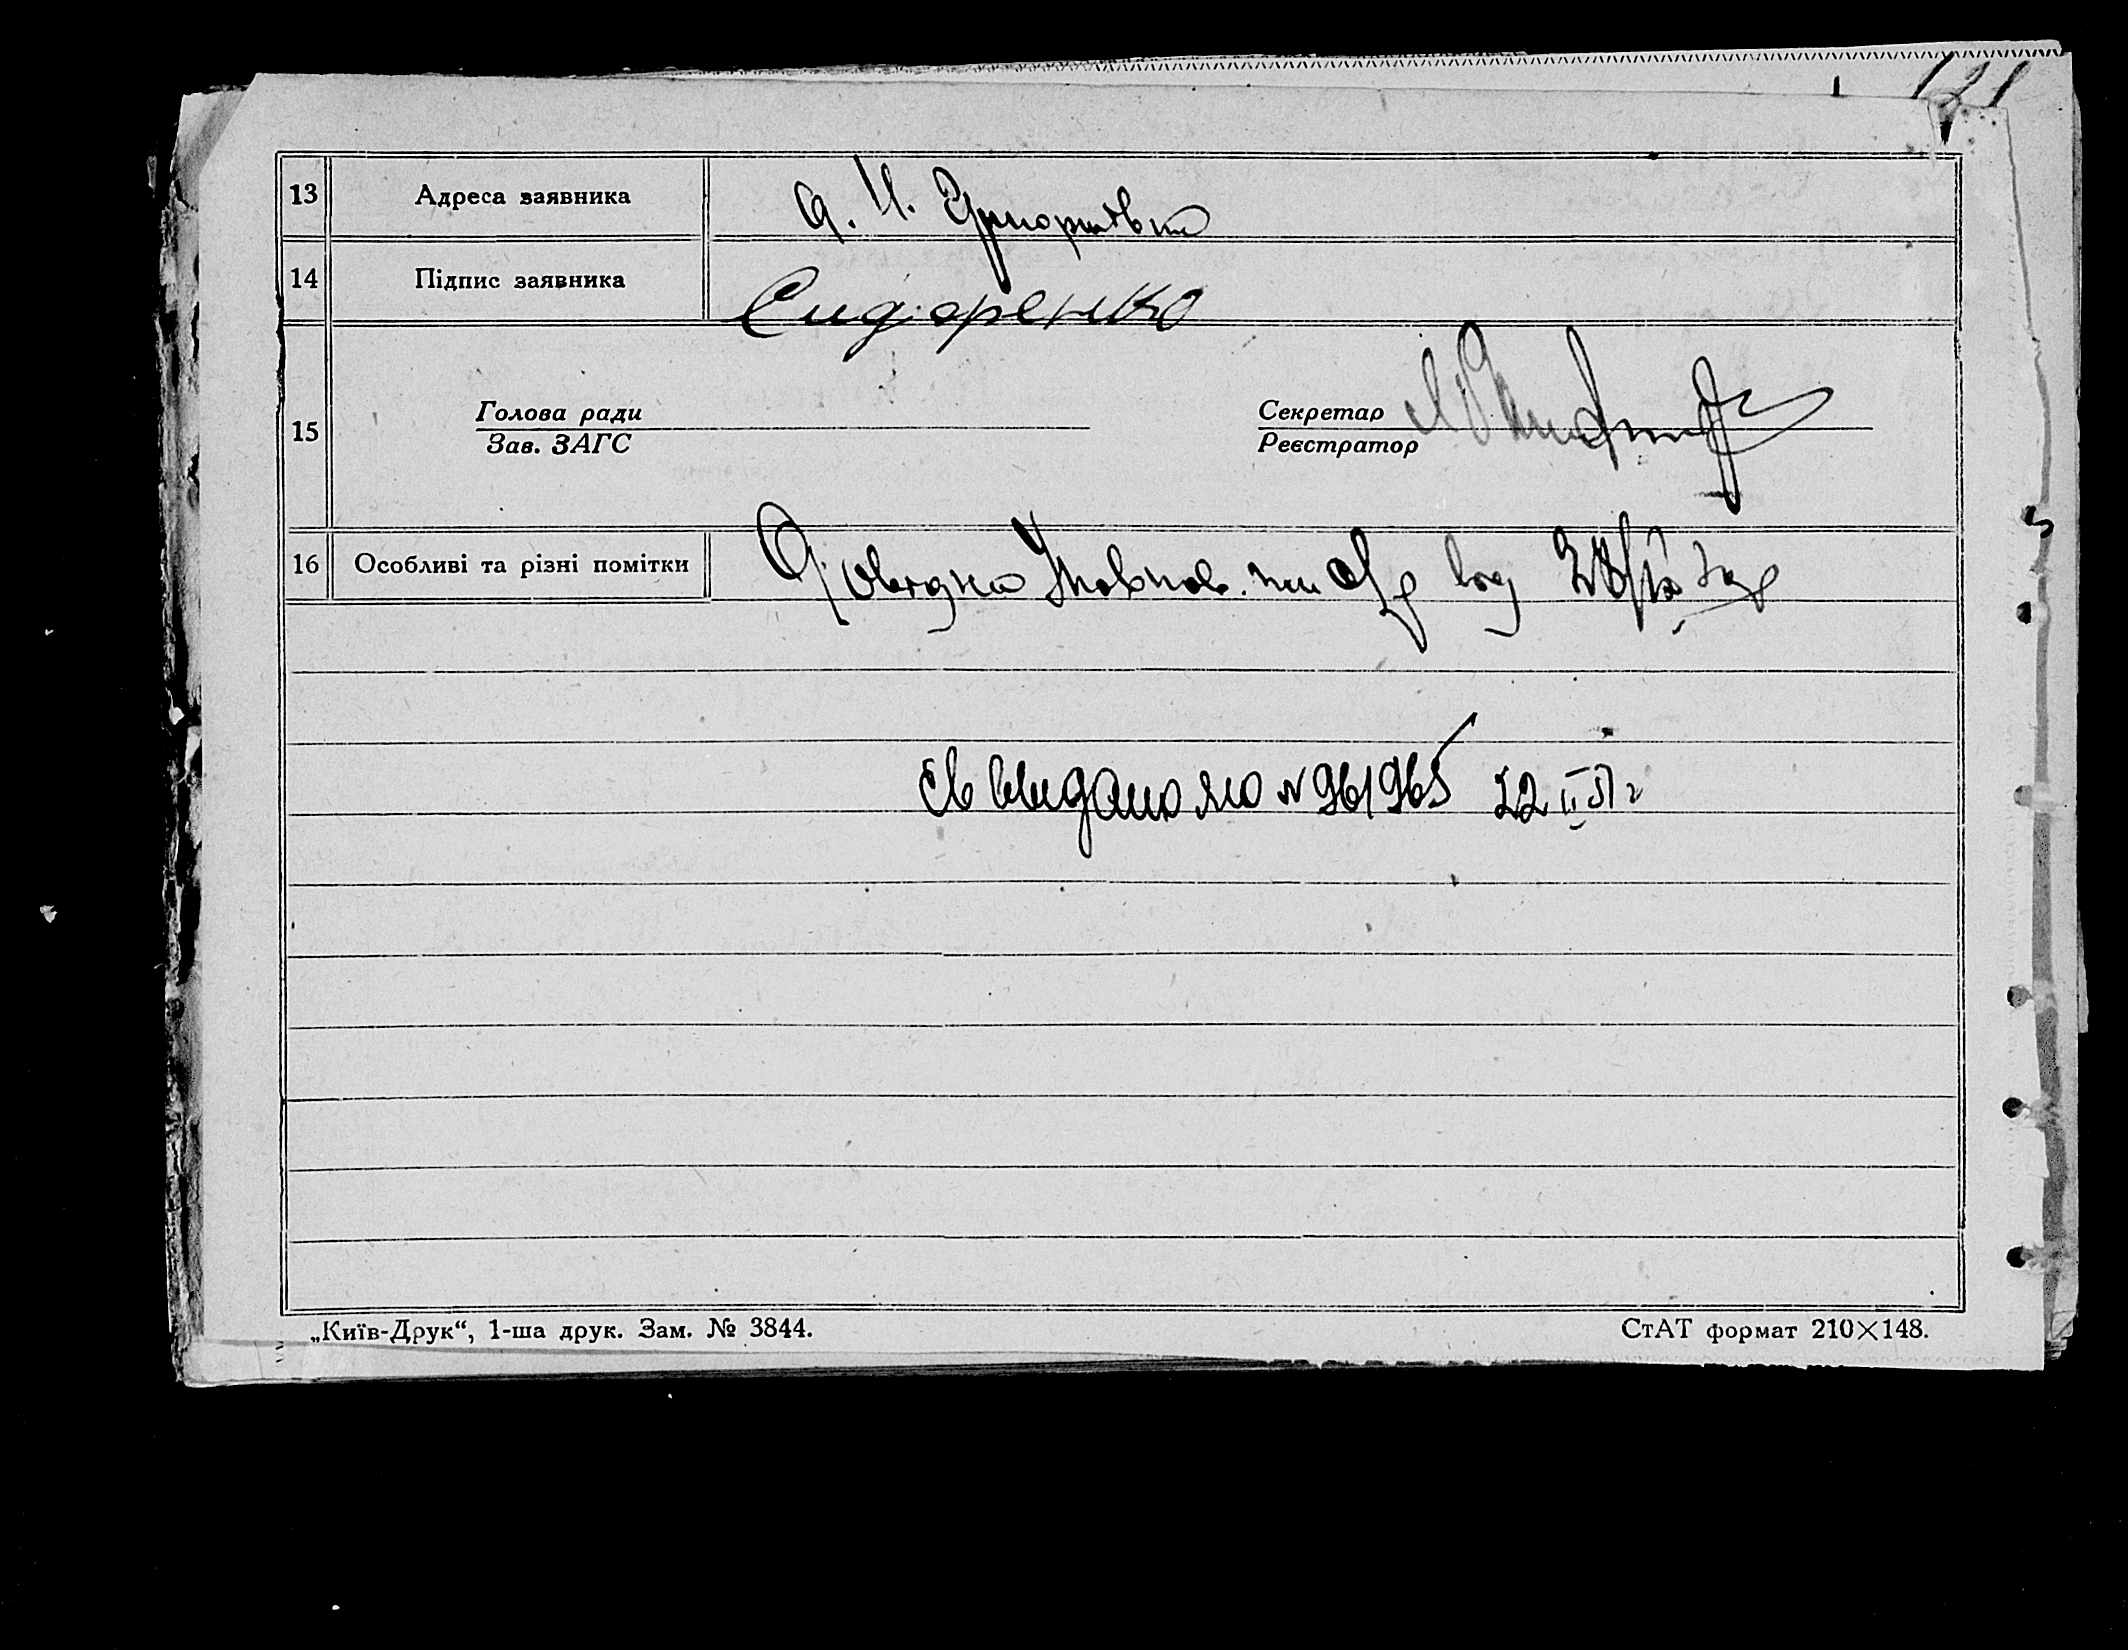 121
13 Адреса заявника с. Н. Григорівка
14 Підпис заявника Сидоренко
Голова ради Секретар
15
Зав. ЗАГС Реєстратор
16 Особливі та різні помітки Довідка
Св видано ЯЮ № 961965 22 II 51 г
„Київ-Друк“, 1-ша друк. Зам. № 3844. СтАТ формат 210×148.